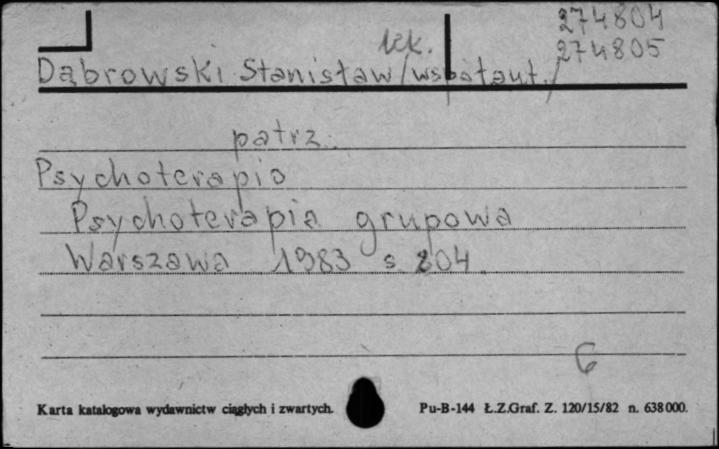 274804
lek. 274805
Dąbrowski Stanisław /współaut./
patrz.
Psychoterapia
Psychoterapia grupowa
Warszawa 1983 s 204
6
Karta katalogowa wydawnictw ciągłych i zwartych. Pu-B-144 Ł.Z.Graf. Z. 120/15/82 n. 638000.